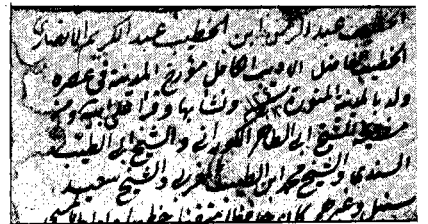 الخطيب عبد الرحمن ابن الخطيب عبد الكريم الانصاري
الخطيب الفاضل الاديب الكامل مؤرخ المدينة في عصره
ولد بالمدينة المنورة ونشأ بها وقرأ على ابيه و
الشيخ ابي الطاهر الكوراني والشيخ ابي الطيب
السندي والشيخ محمد ابن الطيب المغربي والشيخ سعيد
سنبل وغيرهم كان